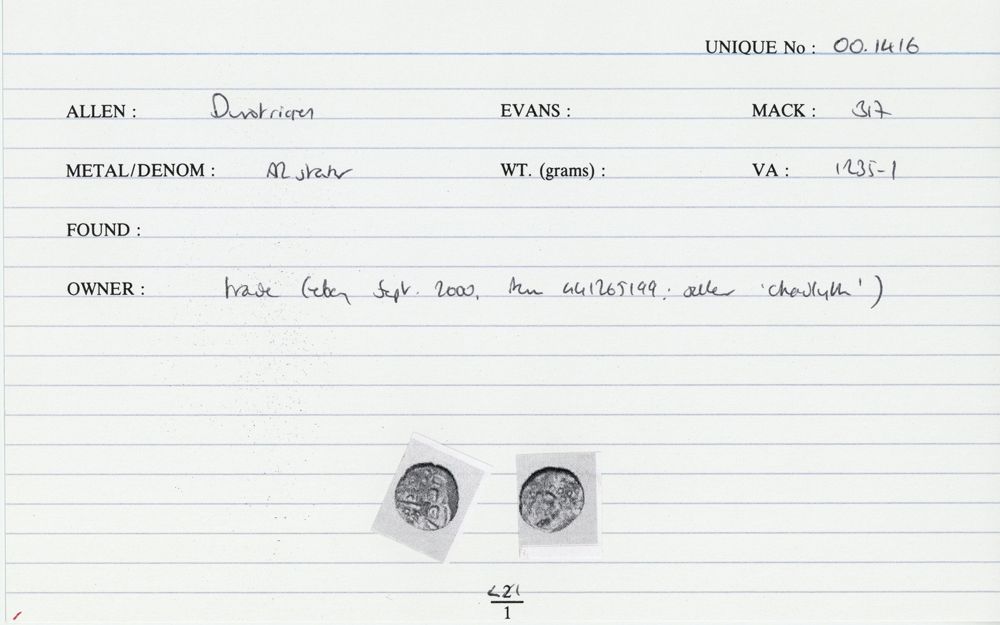 UNIQUE No : 00.1416
ALLEN : Durotriges EVANS : MACK : 317
METAL/DENOM : AR stater WT. (grams) : VA : 1235-1
FOUND :
OWNER : trade (eBay Sept. 2000, item 441265199: seller ')
1